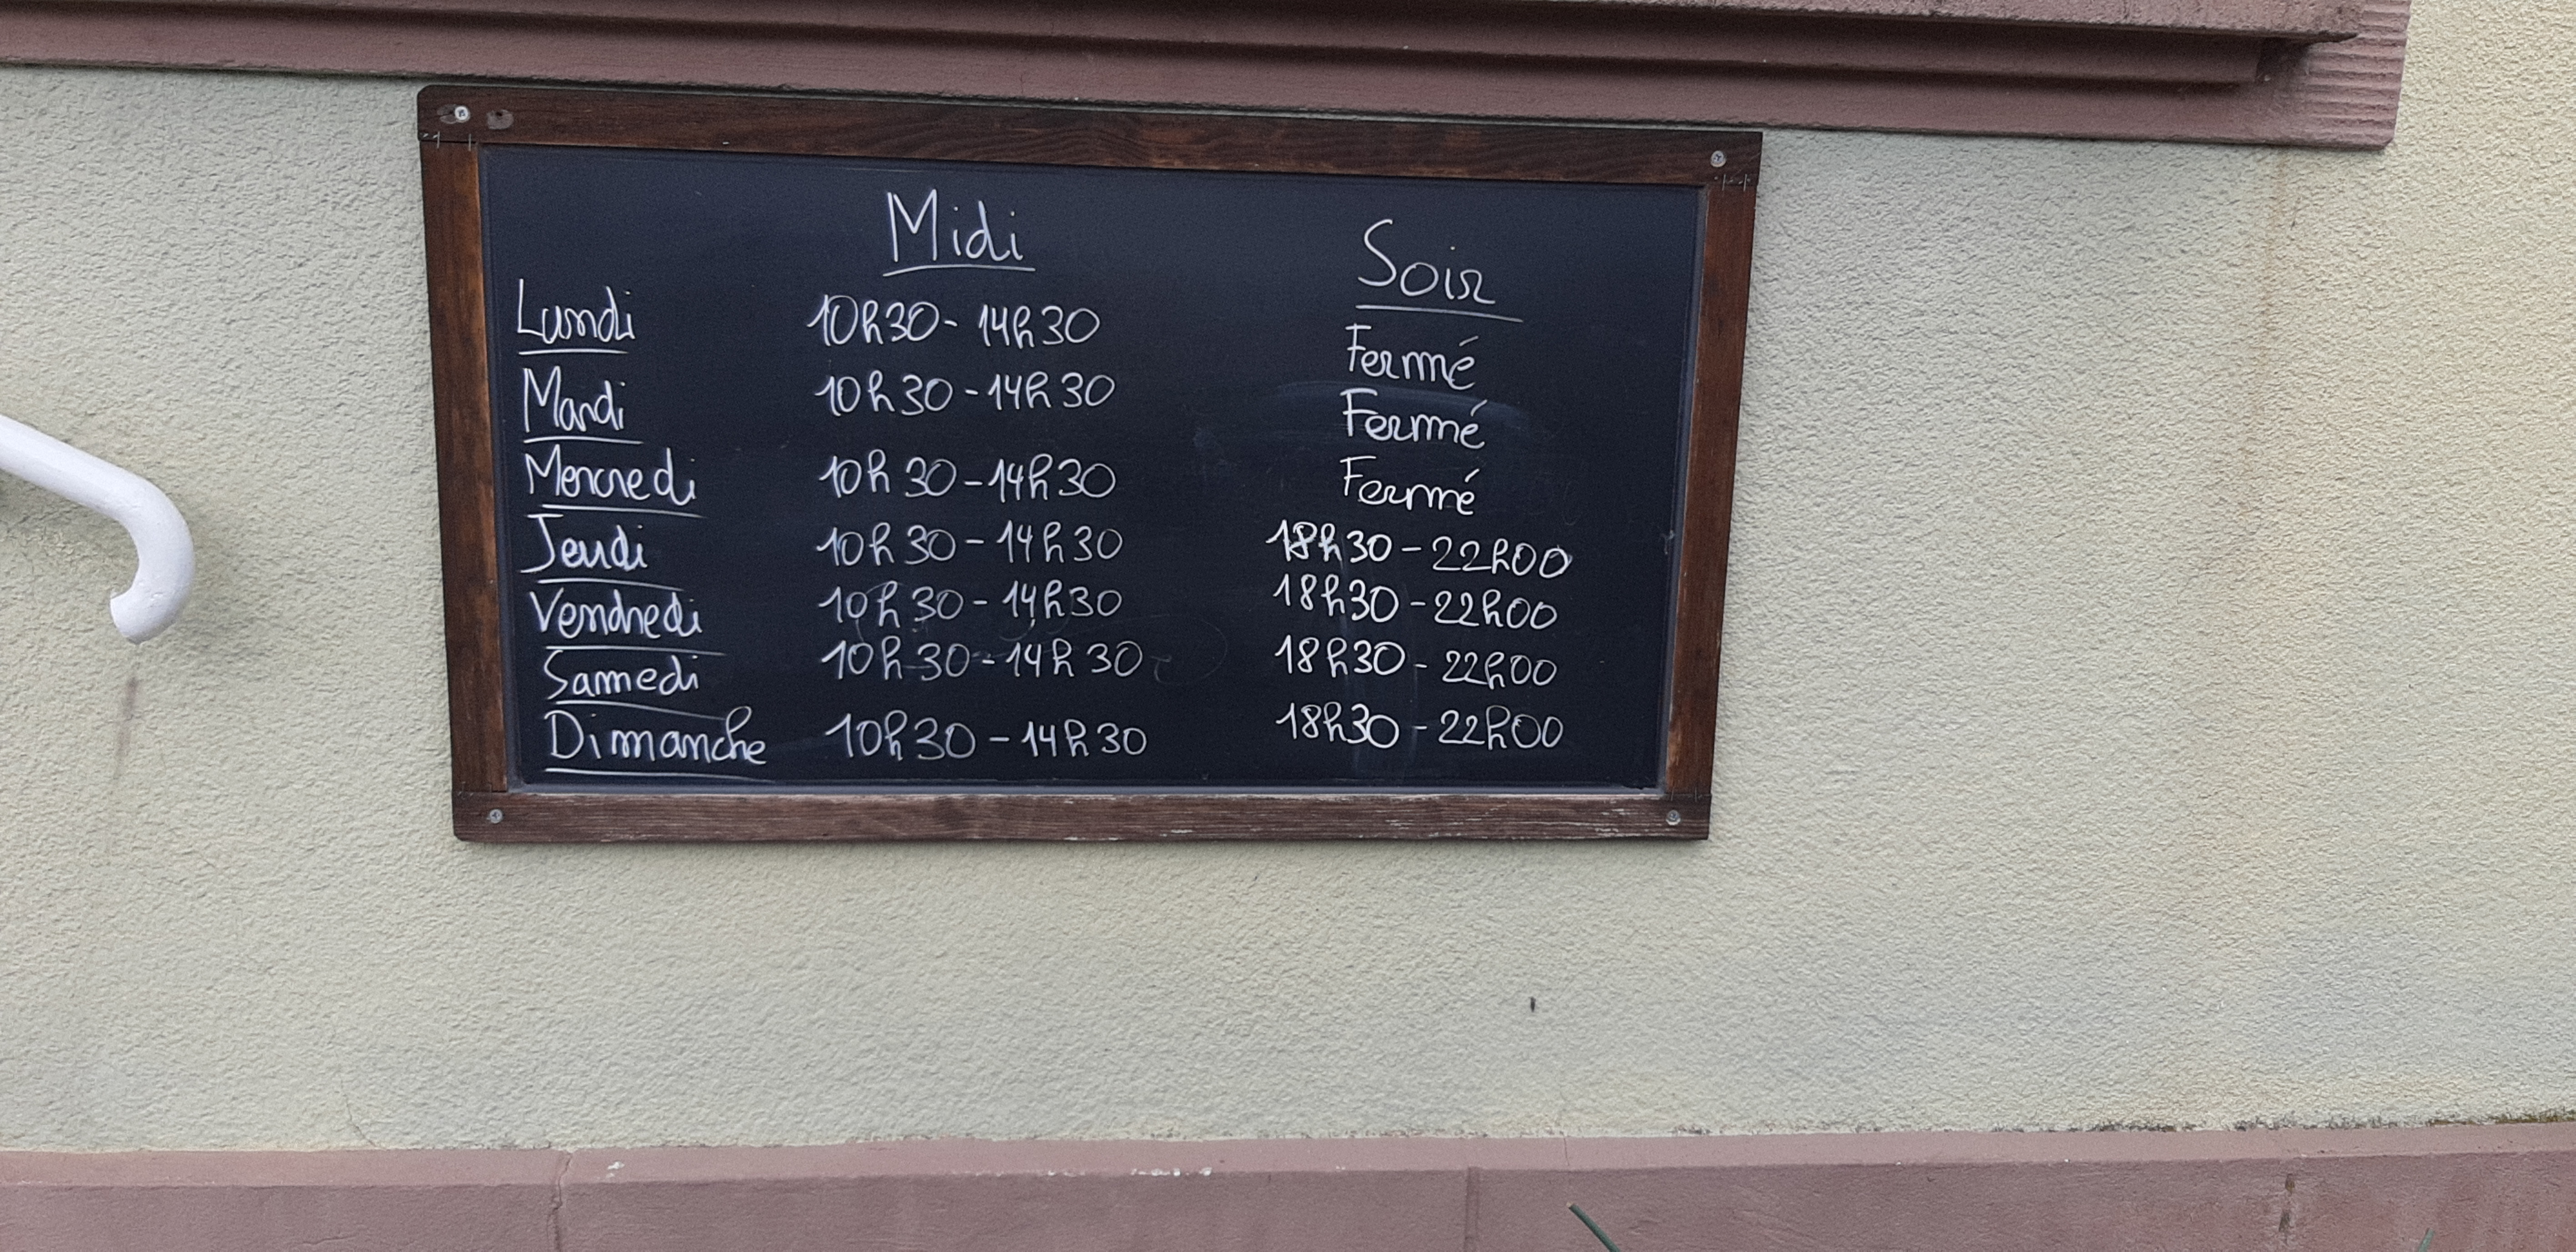 Midi Soir
Lundi 10h30 - 14h30 Fermé
Mardi 10h30 - 14h30 Fermé
Mercredi 10h30 - 14h30 Fermé
Jeudi 10h30 - 14h30 18h30 - 22h00
Vendredi 10h30 - 14h30 18h30 - 22h00
Samedi 10h30 - 14h30 18h30 - 22h00
Dimanche 10h30 - 14h30 18h30 - 22h00